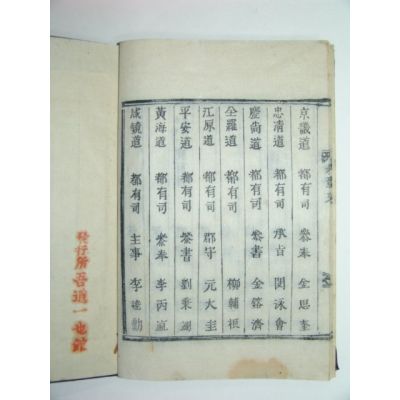 京畿道 都有司 叅奉 金思奎
忠清道 都有司 承旨 閔泳會
慶尙道 都有司 叅書 金容濟
全羅道 都有司 柳輔桓
江原道 都有司 郡守 元大圭
平安道 都有司 叅書 劉秉
黃海道 都有司 叅奉 李丙
咸鏡道 都有司 主事 李達勳
發行所吾道一也館